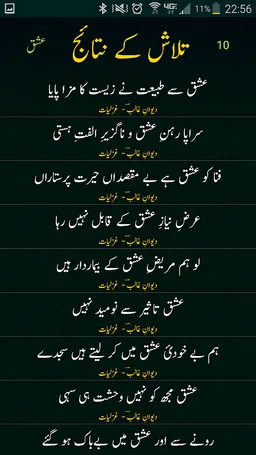 11% 22:56
عشق تلاش کے نتائج 10
عشق سے طبیعت نے زیست کا مزا پایا
دیوانِ غالب - غزلیات
سراپا رہنِ عشق و ناگزیرِ الفتِ ہستی
دیوانِ غالب - غزلیات
فنا کو عشق ہے بے مقصداں حیرت پرستاراں
دیوانِ غالب - غزلیات
عرضِ نیازِ عشق کے قابل نہیں رہا
دیوانِ غالب - غزلیات
لو ہم مریضِ عشق کے بیماردار ہیں
دیوانِ غالب - غزلیات
عشق تاثیر سے نومید نہیں
دیوانِ غالب - غزلیات
ہم بے خودیٔ عشق میں کر لیتے ہیں سجدے
دیوانِ غالب - غزلیات
عشق مجھ کو نہیں وحشت ہی سہی
دیوانِ غالب - غزلیات
رونے سے اور عشق میں بےباک ہو گئے